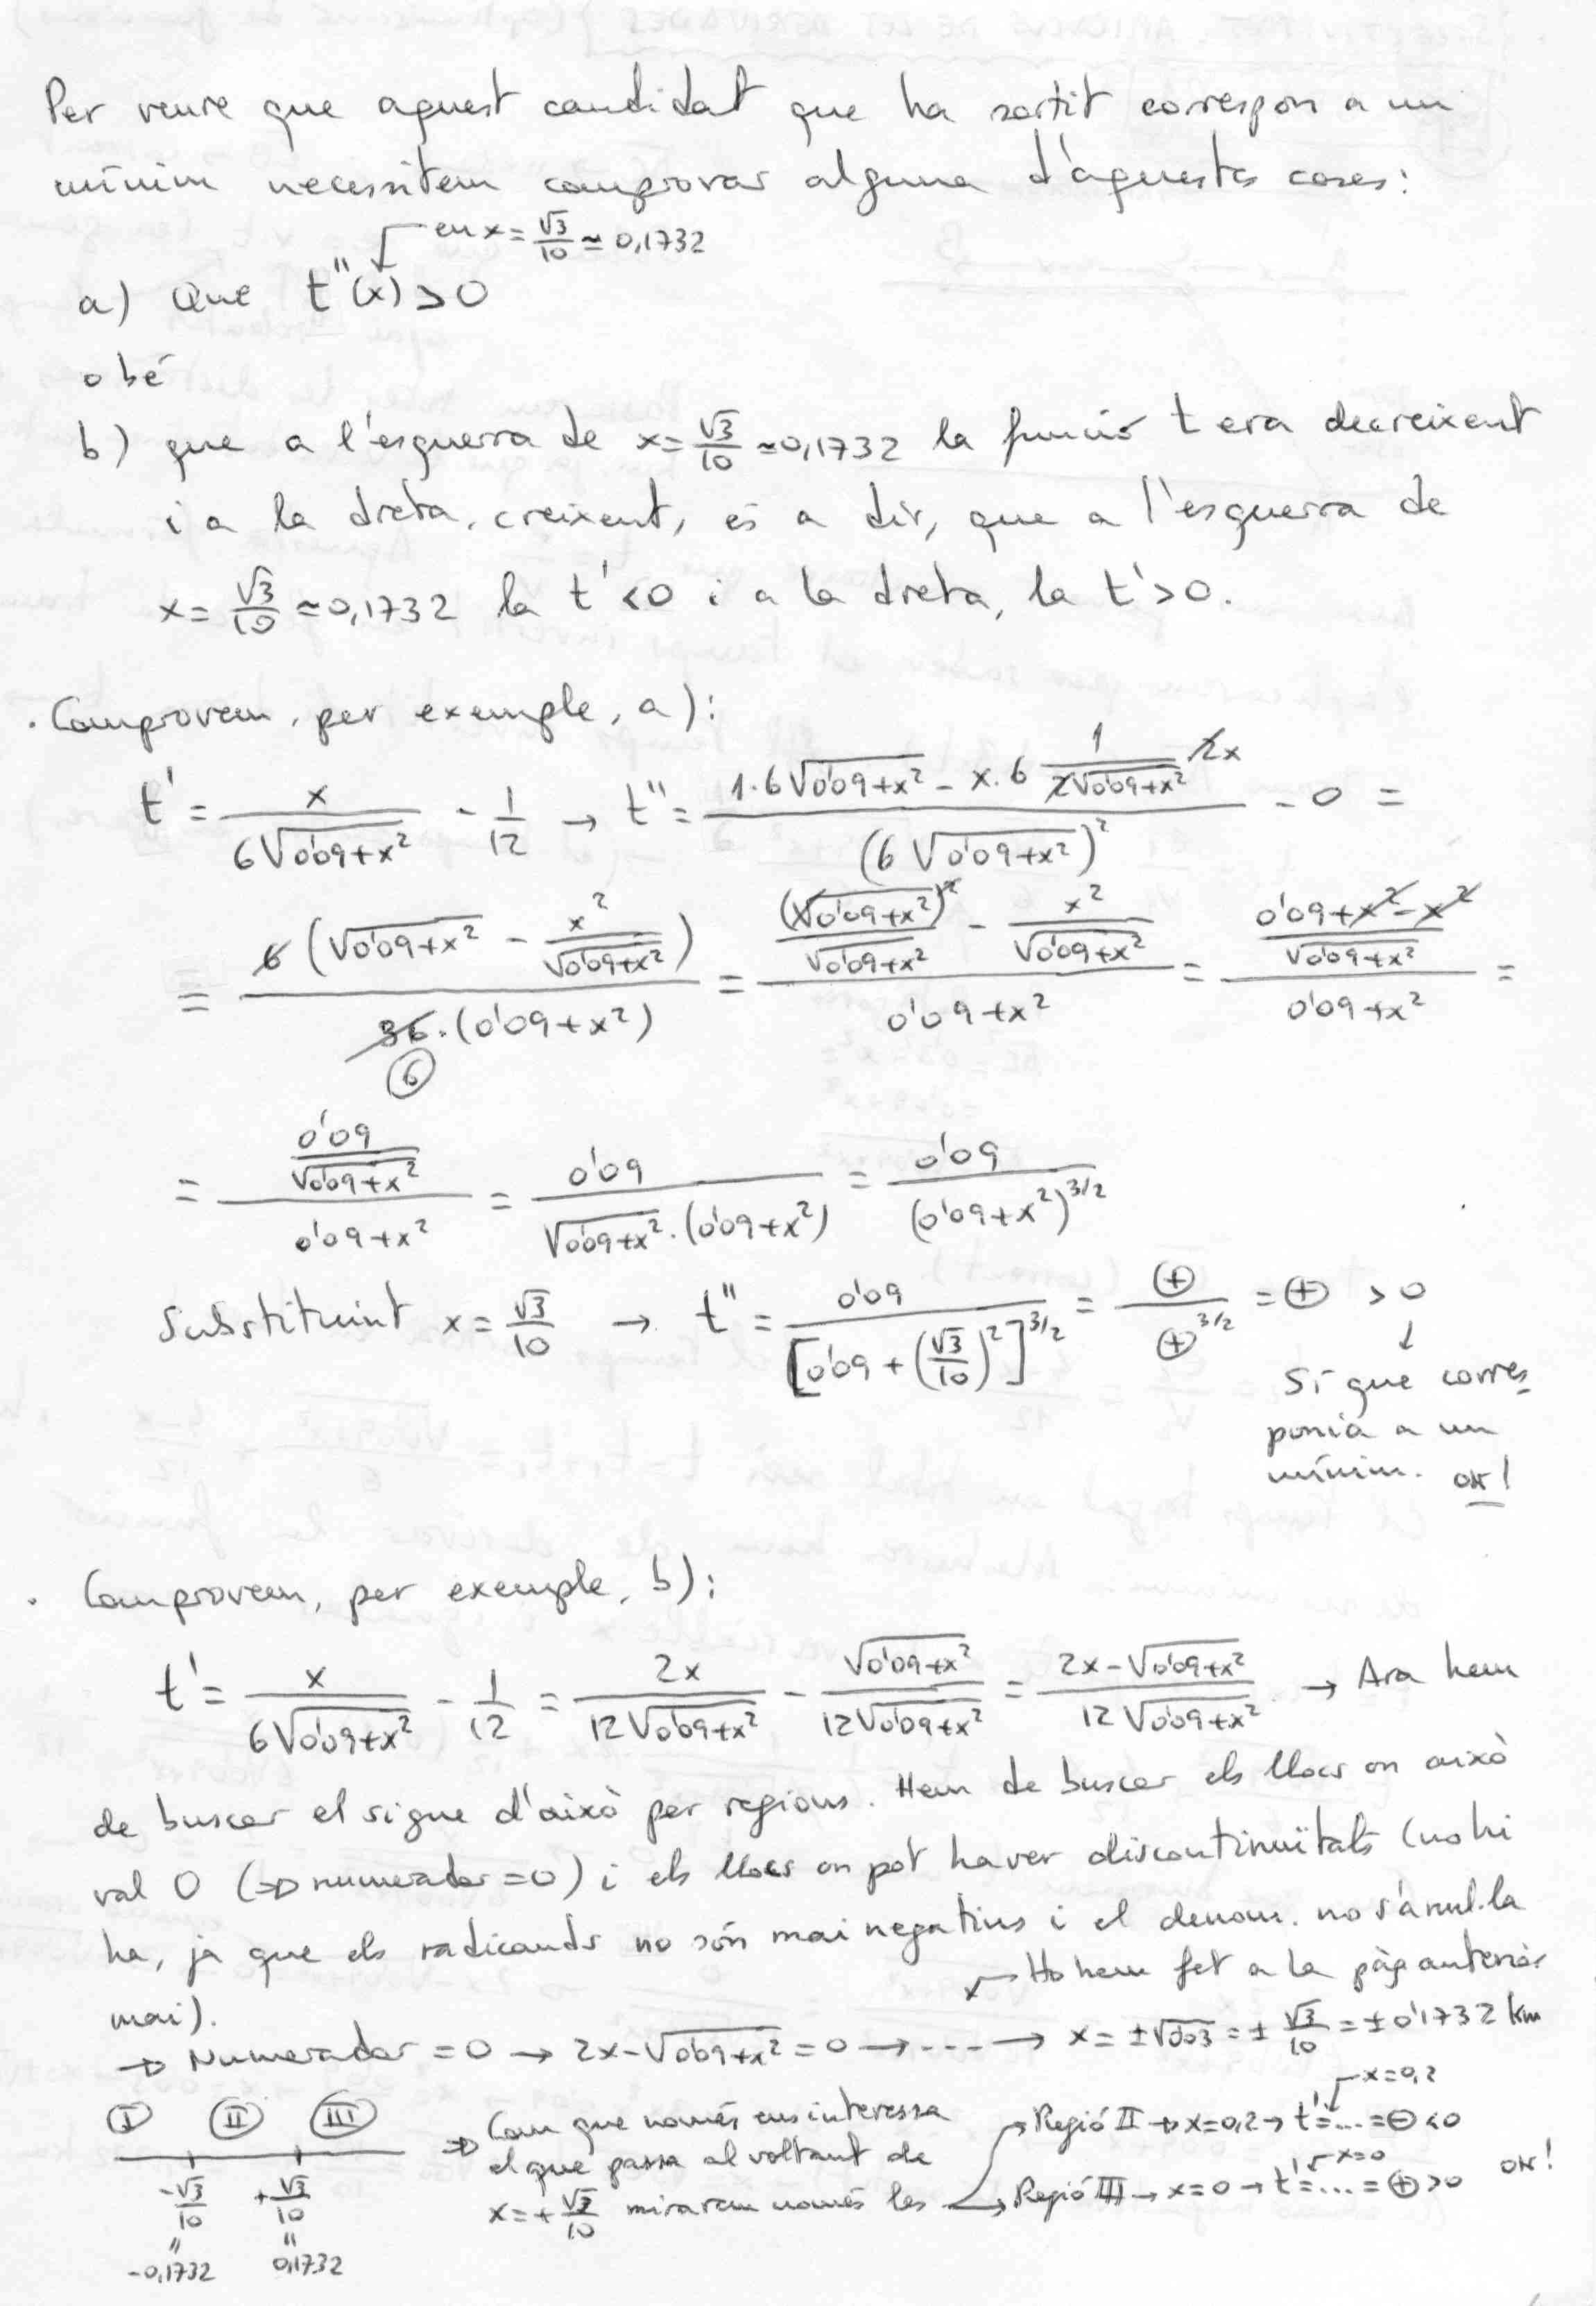 Per veure que aquest candidat que ha sortit correspon a un
mínim necessitem comprovar alguna d'aquestes coses:
en x = √3/10 ≃ 0,1732
a) Que t''(x) > 0
o bé
b) que a l'esquerra de x = √3/10 ≃ 0,1732 la funció t era decreixent
i a la dreta, creixent, és a dir, que a l'esquerra de
x = √3/10 ≃ 0,1732 la t' < 0 i a la dreta, la t' > 0.
· Comprovem, per exemple, a):
t' = x/(6√(0'09+x²)) - 1/12 → t'' = (1·6√(0'09+x²) - x·6 1/(2√(0'09+x²)) 2x)/(6√(0'09+x²))² - 0 =
= 6(√(0'09+x²) - x²/√(0'09+x²))/(36·(0'09+x²)) = ((√(0'09+x²))²/√(0'09+x²) - x²/√(0'09+x²))/(0'09+x²) = ((0'09+x²-x²)/√(0'09+x²))/(0'09+x²) =
6
= (0'09/√(0'09+x²))/(0'09+x²) = 0'09/(√(0'09+x²)·(0'09+x²)) = 0'09/(0'09+x²)^(3/2)
Substituint x = √3/10 → t'' = 0'09/[0'09+(√3/10)²]^(3/2) = ⊕/⊕^(3/2) = ⊕ > 0
↓
Sí que corres-
ponia a un
mínim. OK!
· Comprovem, per exemple, b):
t' = x/(6√(0'09+x²)) - 1/12 = 2x/(12√(0'09+x²)) - √(0'09+x²)/(12√(0'09+x²)) = (2x-√(0'09+x²))/(12√(0'09+x²)) → Ara hem
de buscar el signe d'això per regions. Hem de buscar els llocs on això
val 0 (⇒ numerador = 0) i els llocs on pot haver discontinuïtats (no hi
ha, ja que els radicands no són mai negatius i el denom. no s'anul·la
mai).
Ho hem fet a la pàg anterior
→ Numerador = 0 → 2x-√(0'09+x²) = 0 → ---- → x = ±√0'03 = ± √3/10 = ±0'1732 km
I II III
-√3/10 +√3/10
-0,1732 0,1732
⇒ Com que només ens interessa
el que passa al voltant de
x = + √3/10 mirarem només les
Regió II → x=0,2 → t' = ... = ⊖ < 0
x=0,2
Regió III → x=0 → t' = ... = ⊕ > 0 OK!
x=0